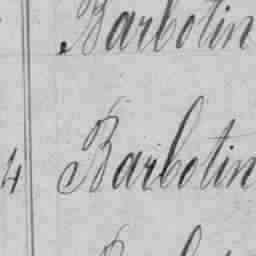 Barbotin
4 Barbotin